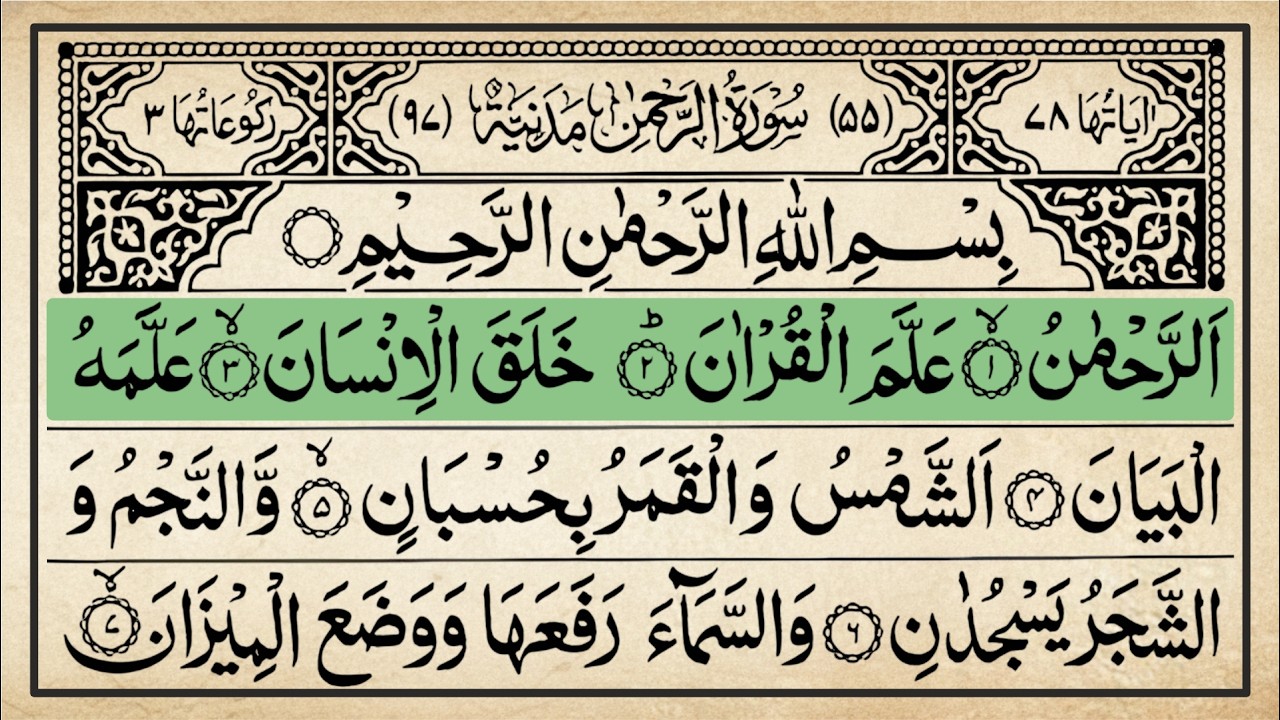 اٰيَاتُهَا ٧٨ (٥٥) سُوْرَةُ الرَّحْمٰنِ مَدَنِيَّةٌ (٩٧) رُكُوْعَاتُهَا ٣
بِسْمِ اللّٰهِ الرَّحْمٰنِ الرَّحِيْمِ ۝
اَلرَّحْمٰنُ ۝١ۙ عَلَّمَ الْقُرْاٰنَ ۝٢ؕ خَلَقَ الْاِنْسَانَ ۝٣ۙ عَلَّمَهُ
الْبَيَانَ ۝٤ اَلشَّمْسُ وَالْقَمَرُ بِحُسْبَانٍ ۝٥ۙ وَّالنَّجْمُ وَ
الشَّجَرُ يَسْجُدٰنِ ۝٦ وَالسَّمَآءَ رَفَعَهَا وَوَضَعَ الْمِيْزَانَ ۝٧ۙ